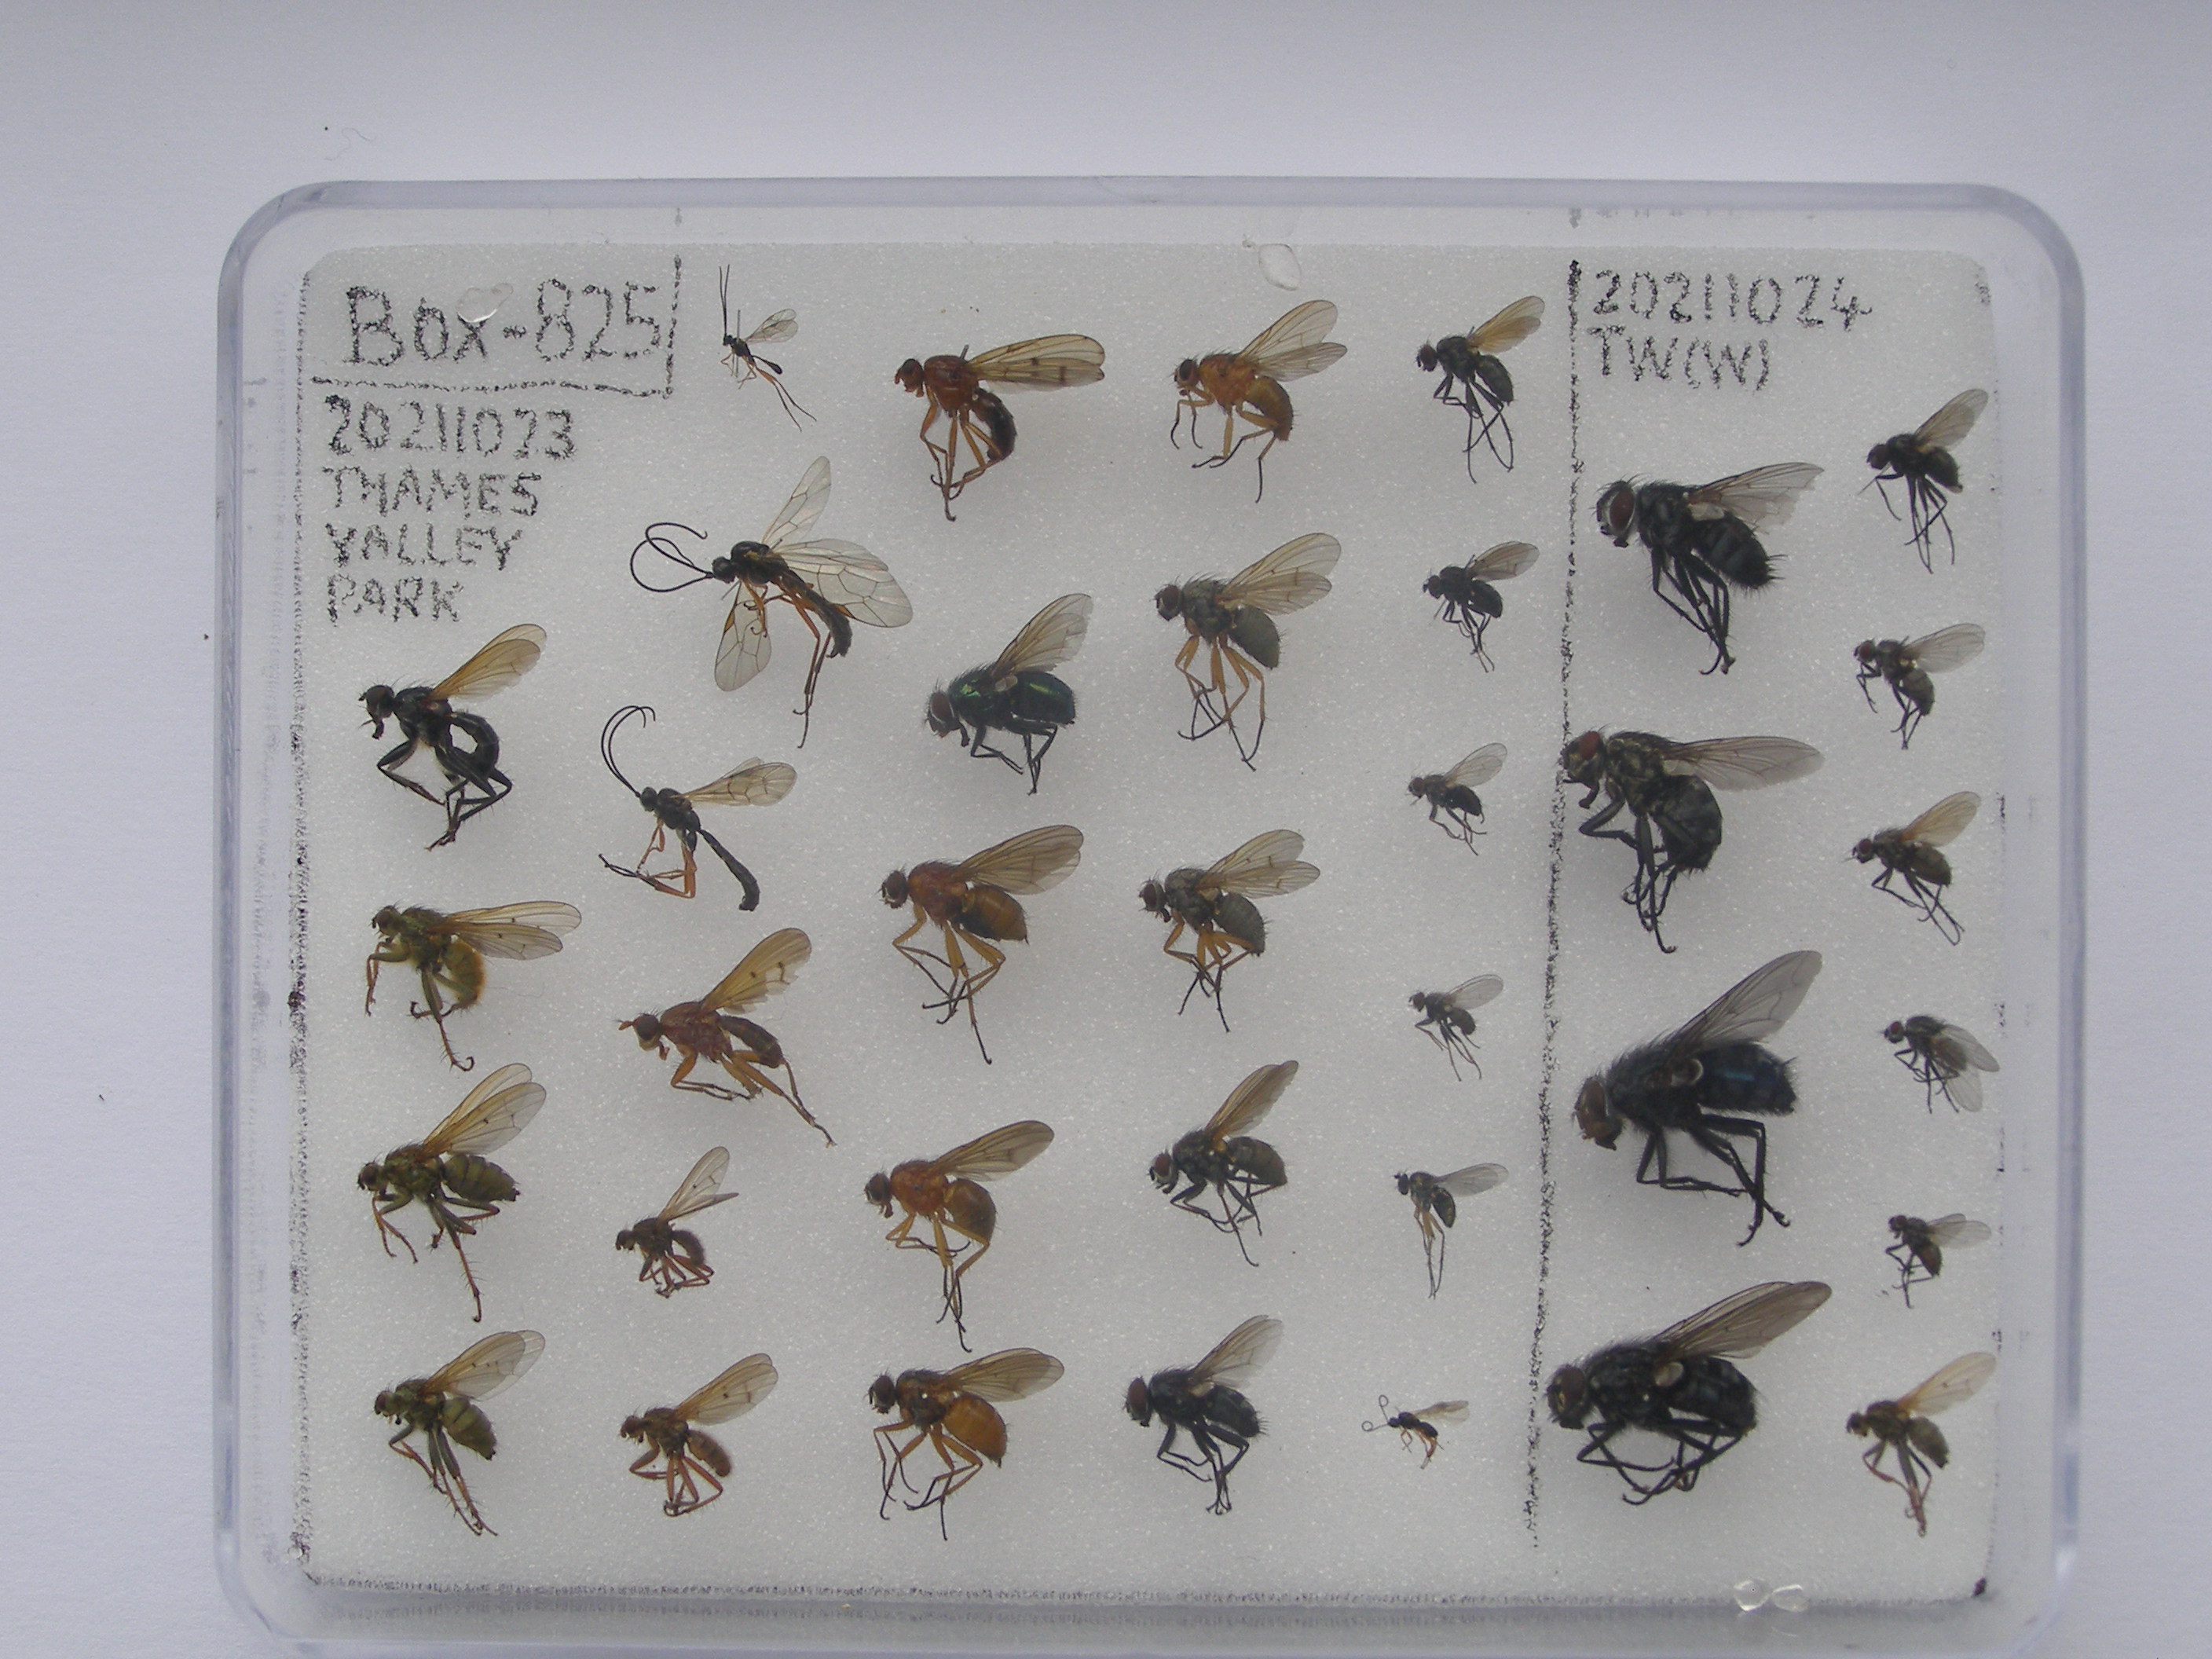 Box-825
20211023
THAMES
VALLEY
PARK
20211024
TW(W)